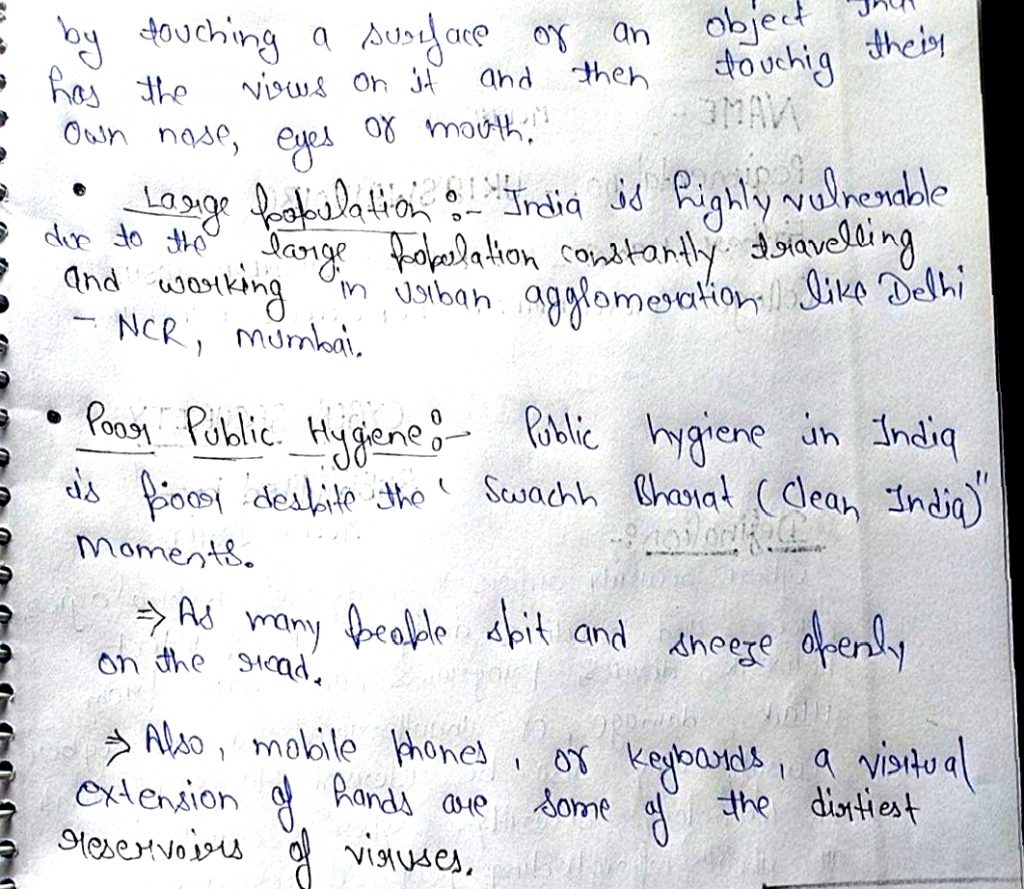 by touching a surface or an object that
has the virus on it and then touchig their
own nose, eyes or mouth.
• Large population :- India is highly vulnerable
due to the large population constantly travelling
and working in urban agglomeration like Delhi
- NCR, Mumbai.
• Poor Public Hygiene :- Public hygiene in India
is poor despite the ' Swachh Bharat (Clean India)"
Moments.
⇒ As many peaple spit and sneeze openly
on the road.
⇒ Also, mobile phones, or keyboards, a virtual
extension of hands are some of the dirtiest
reservoirs of viruses.